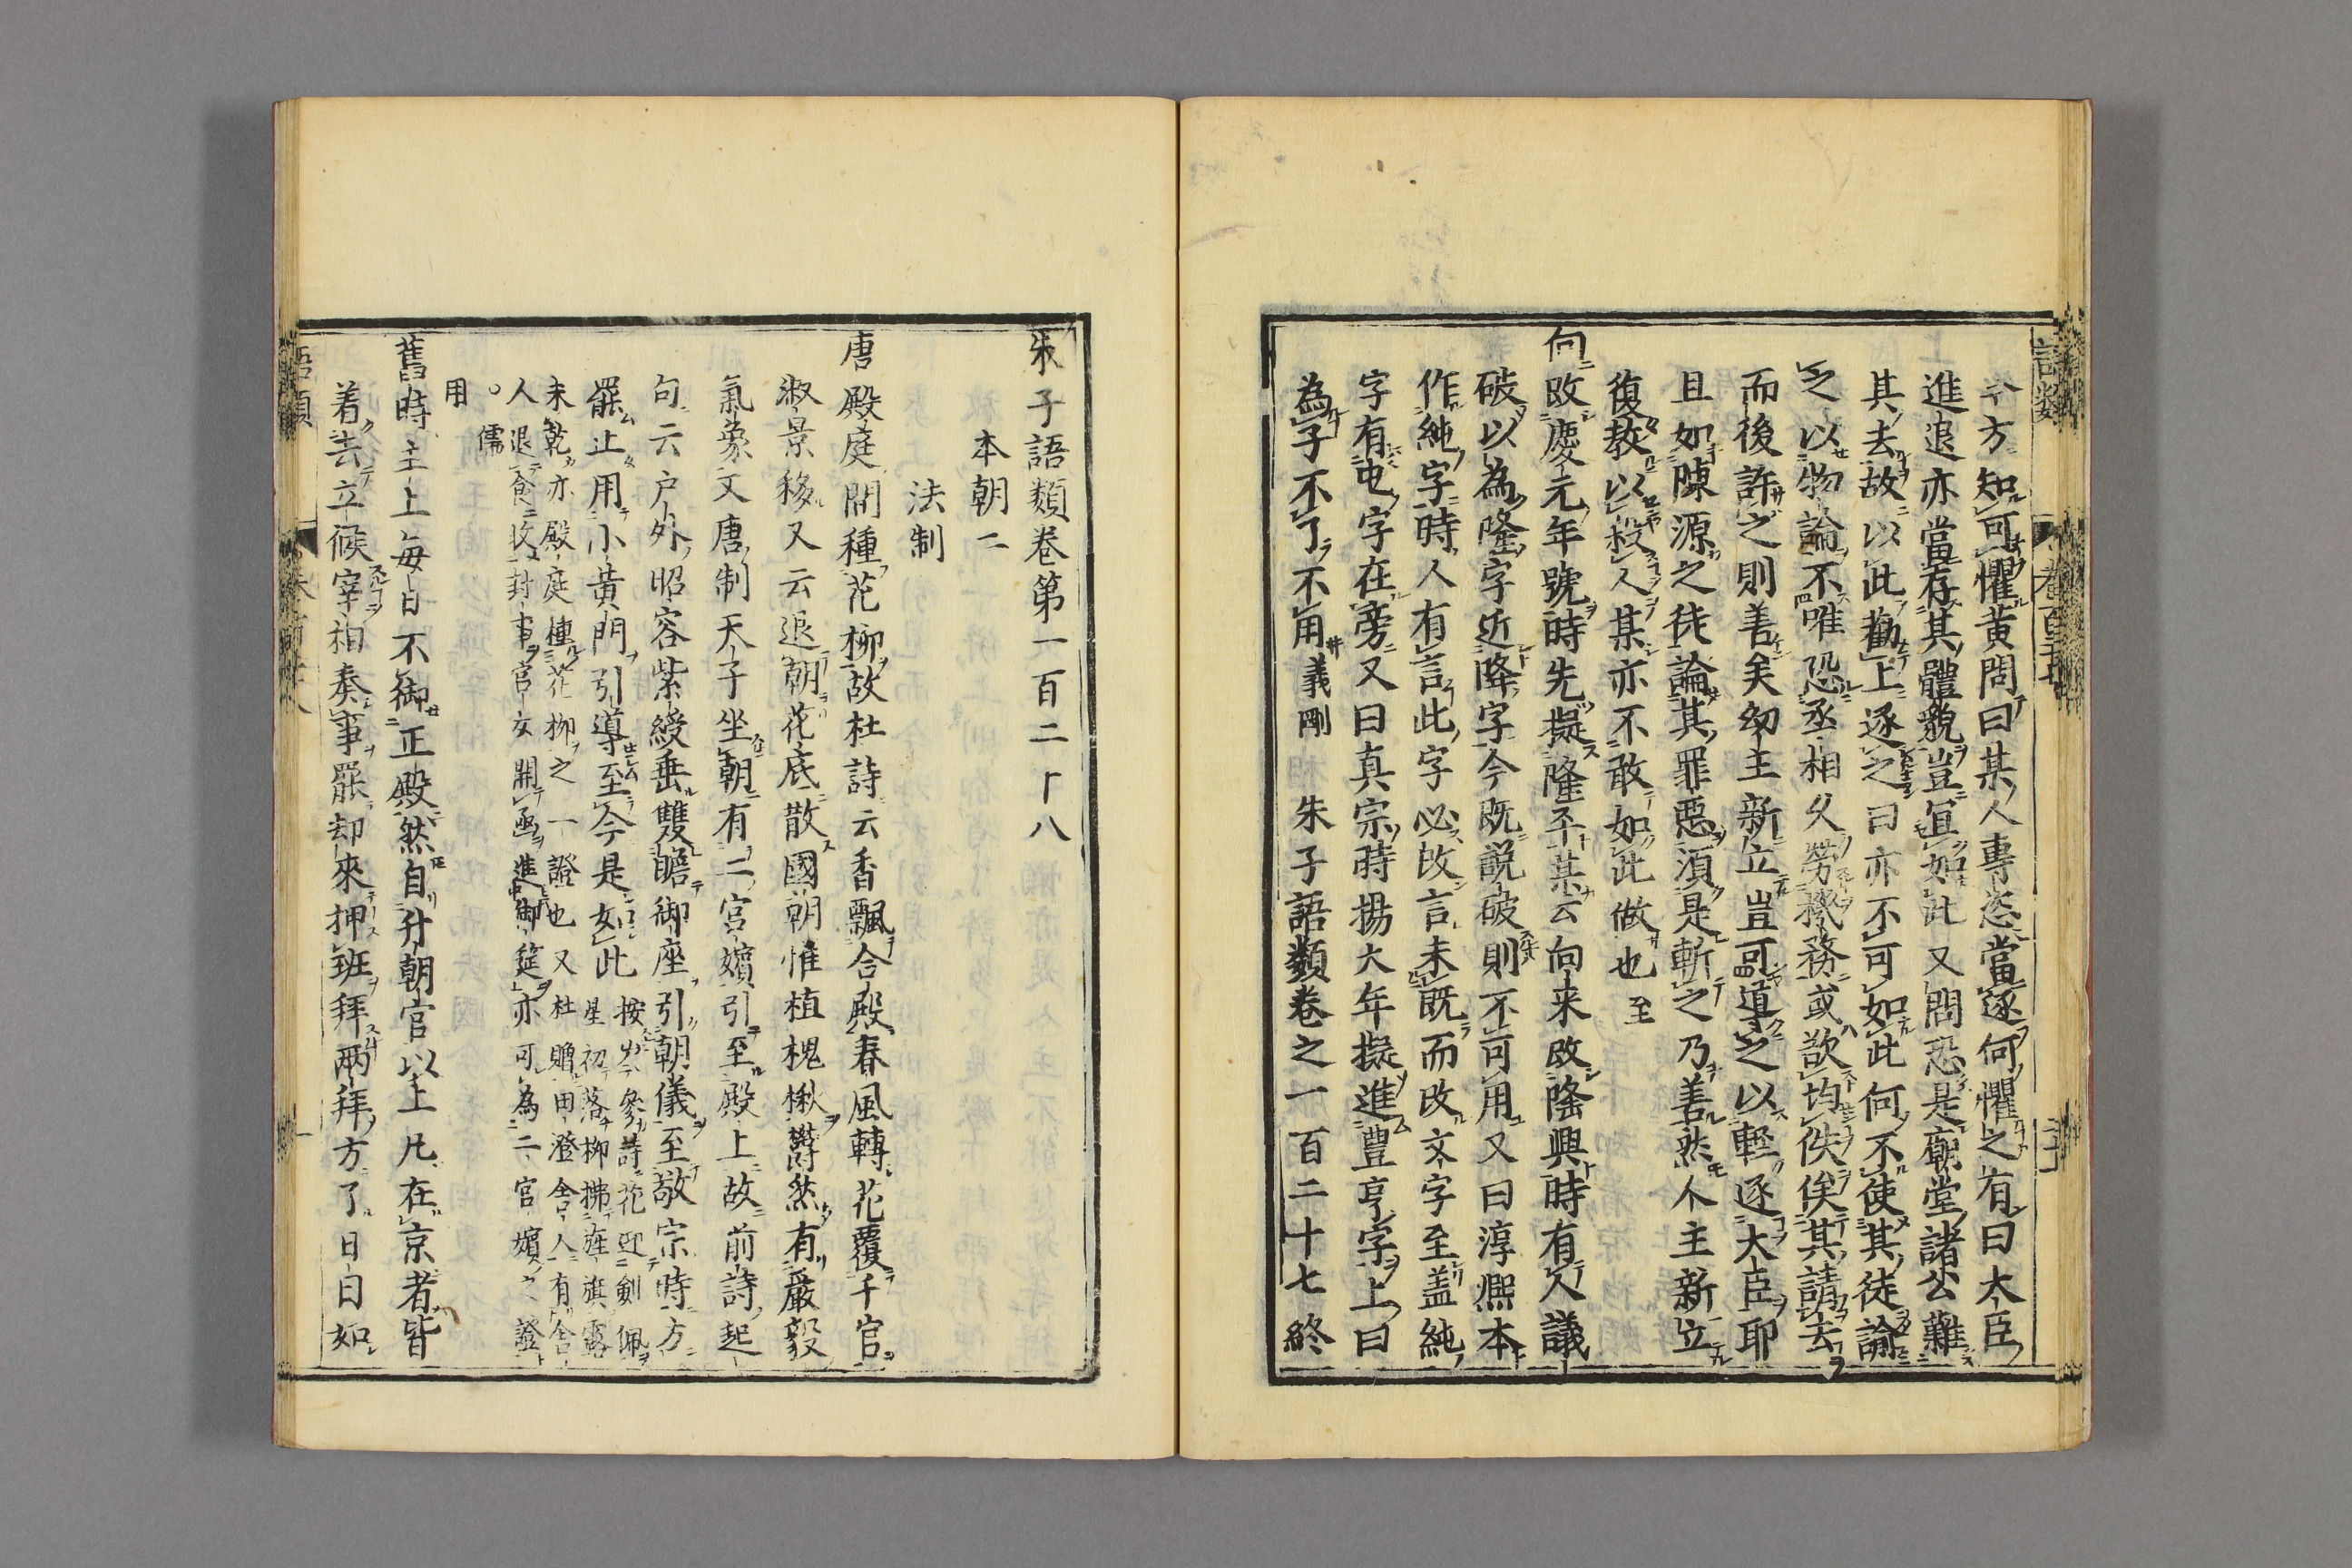 方知可懼黃問曰某人專恣當逐何懼之有曰大臣
進退亦當存其體貌豈宜如此又問恐是廟堂諸公難
其去故以此勸上逐之曰亦不可如此何不使其徒諭
之以物論不唯恐丞相久勞機務或欲均佚俟其請去
而後許之則善矣幼主新立豈可導之以輕逐大臣耶
且如陳源之徒論其罪惡須是斬之乃善然人主新立
復教以殺人某亦不敢如此做也 至
向改慶元年號時先擬隆平某云向来改隆興時有人議
破以為隆字近降字今既說破則不可用又曰淳熙本
作純字時人有言此字必改言未既而改文字至盖純
字有屯字在旁又曰真宗時揚大年擬進豐亨字上曰
為子不了不用義剛 朱子語類卷之一百二十七終
朱子語類卷第一百二十八
本朝二
法制
唐殿庭間種花柳故杜詩云香飄合殿春風轉花覆千官
淑景移又云退朝花底散國朝惟植槐楸鬱然有嚴毅
氣象文唐制天子坐朝有二宮嬪引至殿上故前詩起
句云户外昭容紫綬垂雙瞻御座引朝儀至敬宗時方
罷止用小黄門引導至今是如此 按岑參詩花迎剣佩
星初落柳拂旌旗露
未乾亦殿庭種花柳之一證也又杜贈田澄舍人有舍
人退食收封事官女開函進御筵亦可為二官嬪之證
○儒
用
舊時主上毎日不御正殿然自升朝官以上凡在京者皆
着去立候宰相奏事罷却來押班拜両拜方了日日如